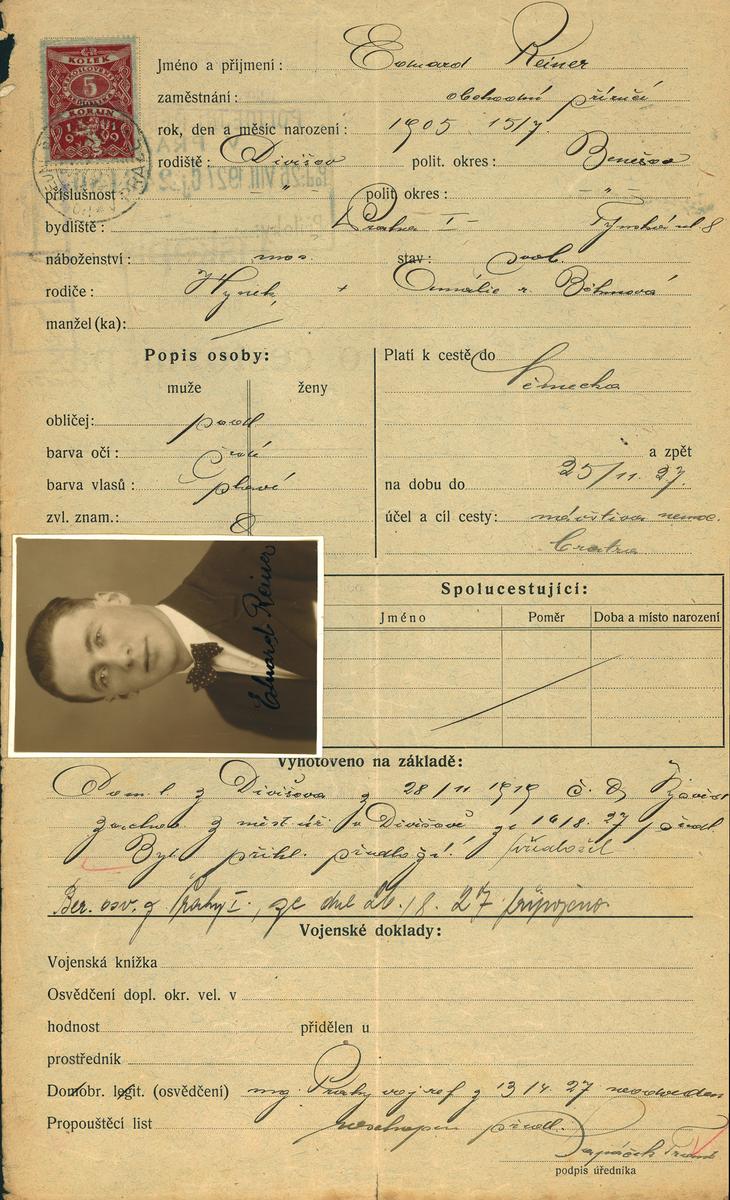 KOLEK
5
KORUN
Jméno a příjmení: Eduard Reiner
zaměstnání: obchodní příručí
rok, den a měsíc narození: 1905 15/7.
rodiště: Divišov polit. okres: Benešov
příslušnost: - " - polit. okres: - " -
bydliště: Praha I- Týnská ul 8
náboženství: mos. stav: svob.
rodiče: Hynek + Amálie r. Böhmová
manžel (ka):
Popis osoby:
muže ženy
obličej: podl
barva očí: šedé
barva vlasů: plavé
zvl. znam.:
Platí k cestě do Německa
a zpět
na dobu do 25/11. 27
účel a cíl cesty: návštěva nemoc.
bratra
Eduard Reiner
Spolucestující:
Jméno Poměr Doba a místo narození
Vyhotoveno na základě:
Dom. l z Divišova z 28/11 1919 č. 8,
zachov. z měst. úř. v Divišově ze 16/8. 27 předl.
Byt. přihl. předloží! předložil
Ber. osv. z Prahy I., ze dne 26./8. 27 připojeno.
Vojenské doklady:
Vojenská knížka
Osvědčení dopl. okr. vel. v
hodnost přidělen u
prostředník
Domobr. legit. (osvědčení) mg. Prahy voj ref z 13/4. 27 neodveden
Propouštěcí list neschopen předl.
podpis úředníka